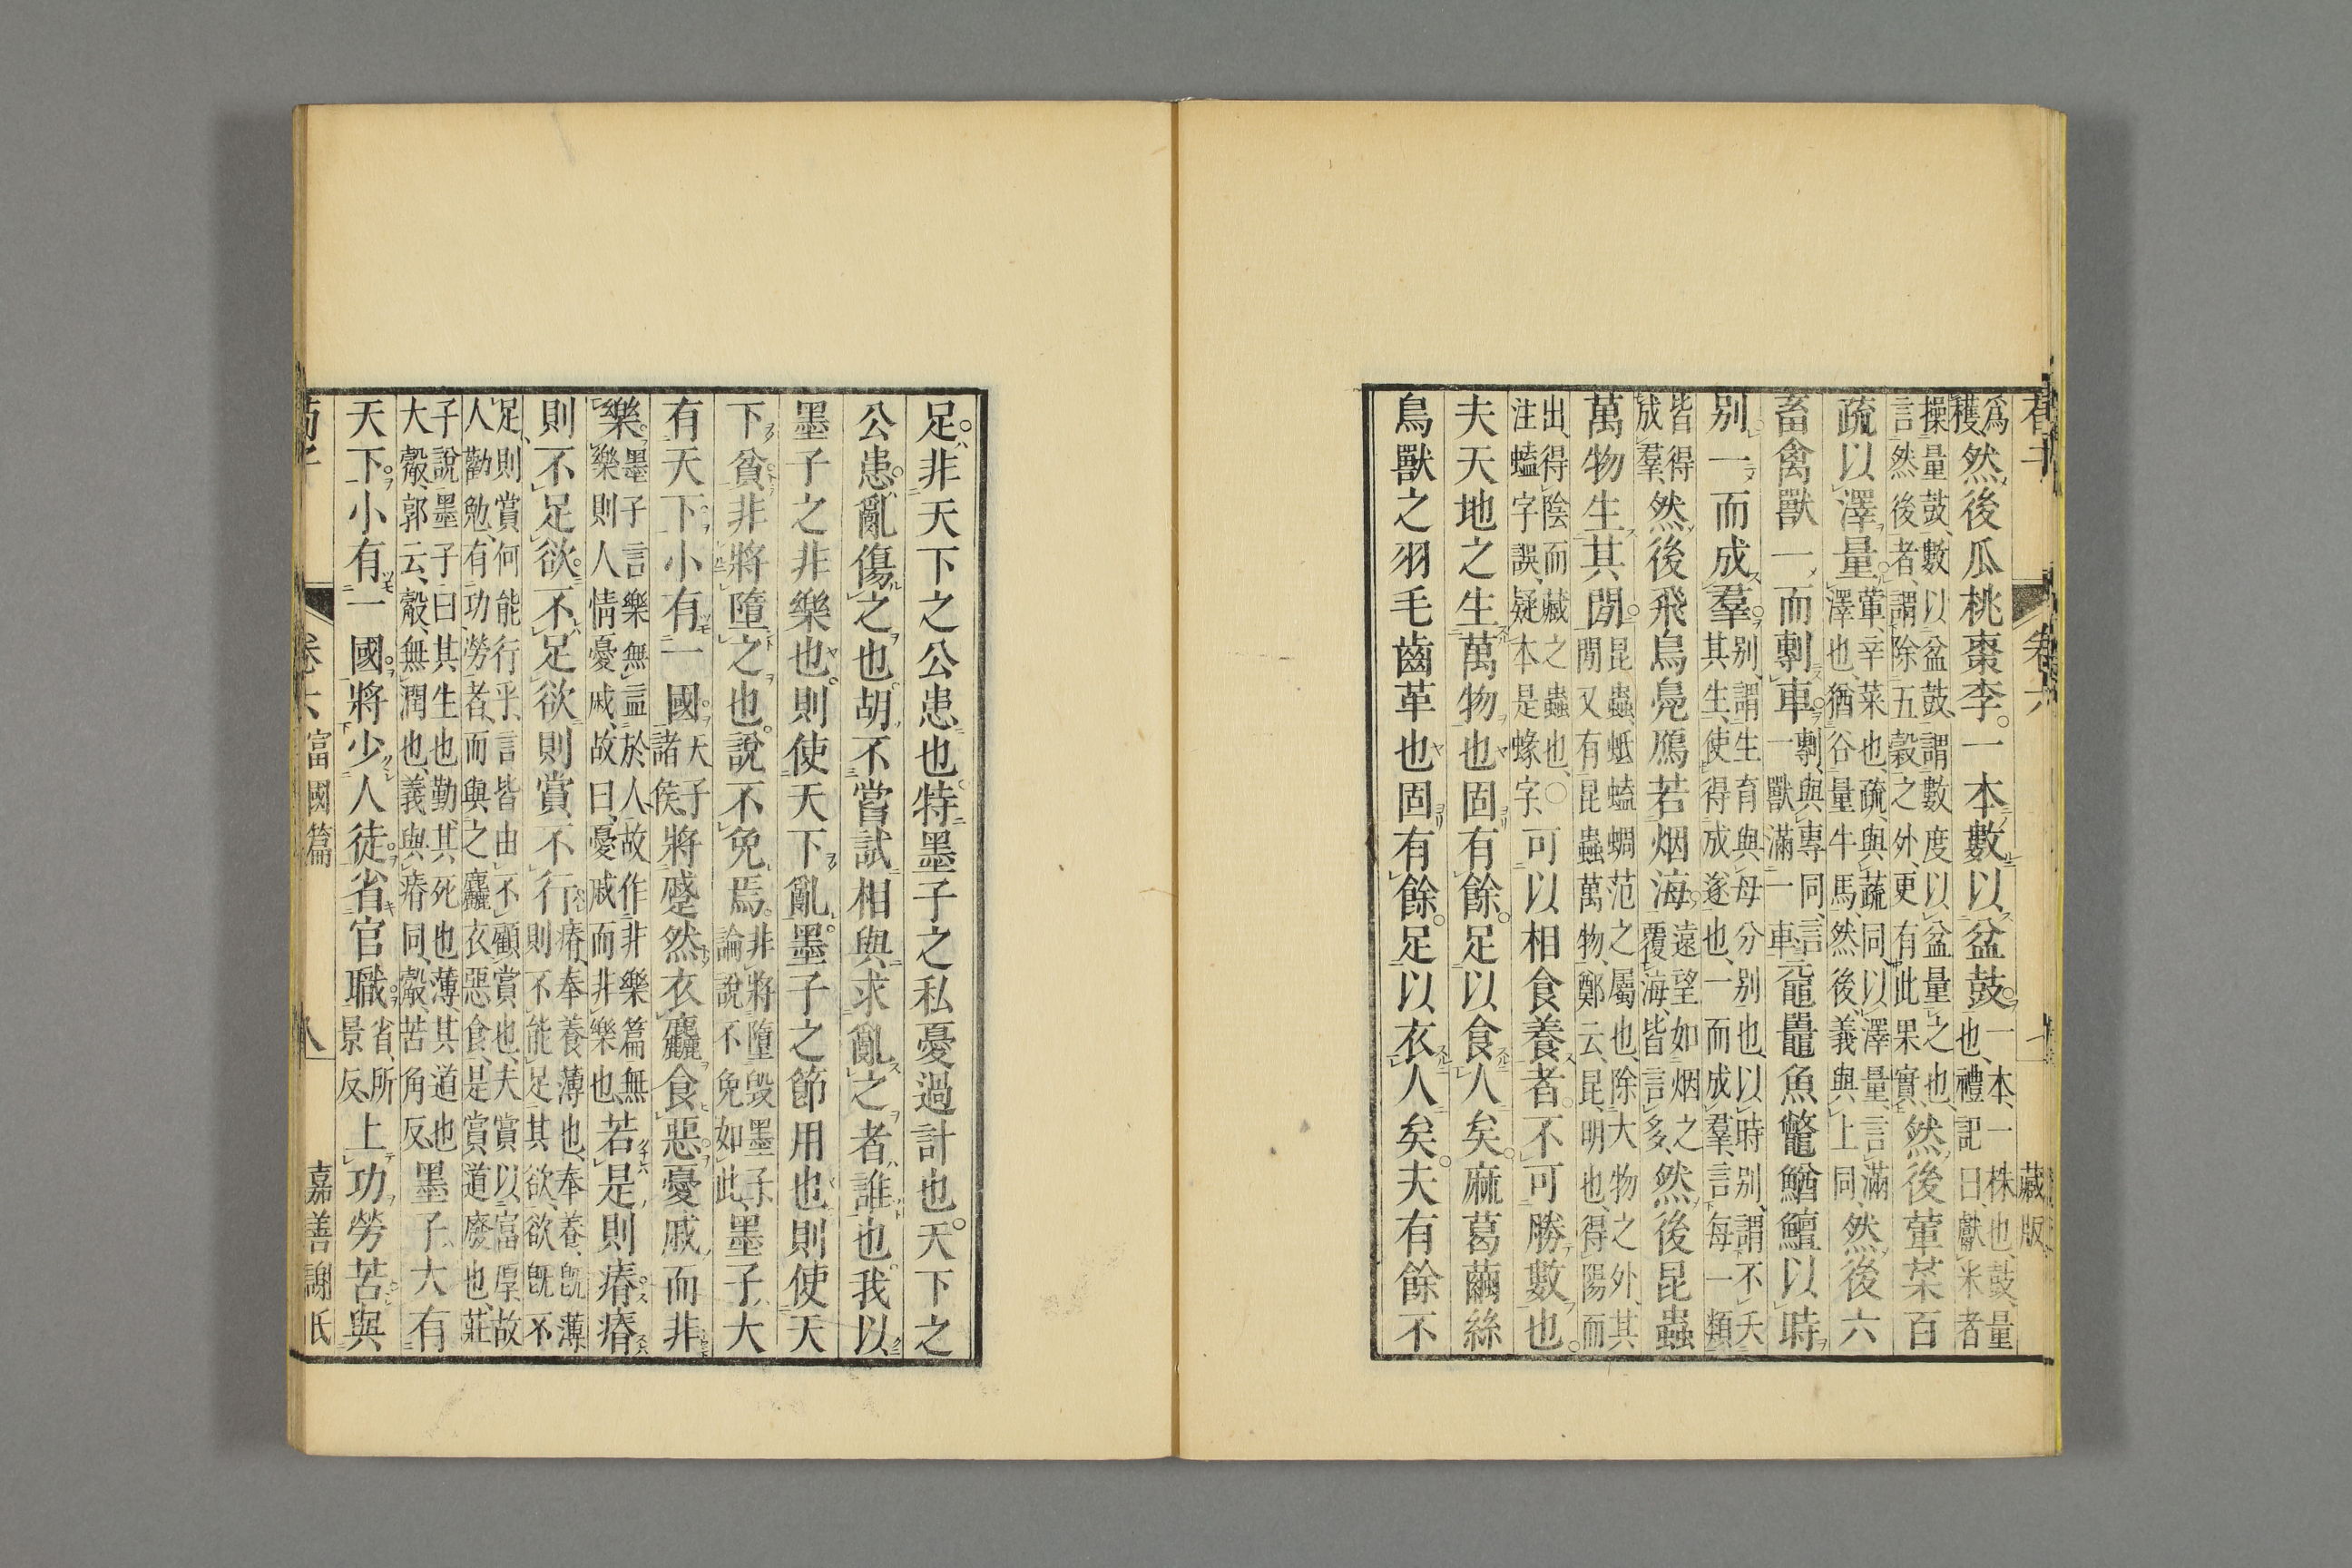 荀子 卷六 藏版
爲穫、然後瓜桃棗李。一本數以盆鼓。一本、一株也、鼓、量也、禮記曰、獻米者
操量鼓、數以盆鼓、謂數度以盆量之也、言然後者、謂除五穀之外、更有此果實、然後葷菜百
疏以澤量。葷、辛菜也、疏、與蔬同、以澤量、言滿澤也、猶谷量牛馬、然後、義與上同、然後六
畜禽獸一而剸車。剸、與專同、言一獸滿一車、黿鼉魚鼈鰌鱣以時
別一而成羣。別、謂生育與母分別也、以時別、謂不夭其生、使得成遂也、一而成羣、言每一類
皆得成羣、然後飛鳥鳧鴈若烟海。遠望如烟之覆海、皆言多、然後昆蟲
萬物生其閒。昆蟲、蚳蜩范之屬也、除大物之外、其閒又有昆蟲萬物、鄭云、昆、明也、得陽而
出、得陰而藏之蟲也、○注字誤、疑本是蝝字、可以相食養者。不可勝數也。
夫天地之生萬物也固有餘。足以食人矣。麻葛繭絲
鳥獸之羽毛齒革也固有餘。足以衣人矣。夫有餘不
足。非天下之公患也。特墨子之私憂過計也。天下之
公患。亂傷之也。胡不嘗試相與求亂之者誰也。我以
墨子之非樂也。則使天下亂。墨子之節用也。則使天
下貧。非將墮之也。說不免焉。非將墮毀墨子、論說不免如此、墨子大
有天下小有一國。天子諸侯、將蹙然衣麤食惡。憂戚而非
樂。墨子言樂無益於人、故作非樂篇、無樂則人情憂戚、故曰、憂戚而非樂也、若是則瘠瘠
則不足欲。不足欲則賞不行。瘠、奉養薄也、奉養旣薄、則不能足其欲、欲旣不
足、則賞何能行乎、言皆由不顧賞也、夫賞以富厚、故人勸勉、有功勞者、而與之麤衣惡食、是賞道廢也、莊
子說墨子曰、其生也勤、其死也薄、其道也大觳、郭云、觳、無潤也、義與瘠同、觳、苦角反、墨子大有
天下。小有一國。將少人徒。省官職。省、所景反、上功勞苦與
荀子 卷六 富國篇 八 嘉善謝氏